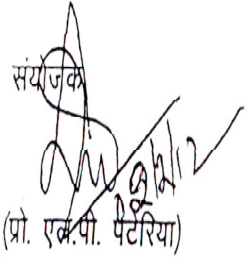 संयोजक
(प्रो. एल.पी. पेटेरिया)